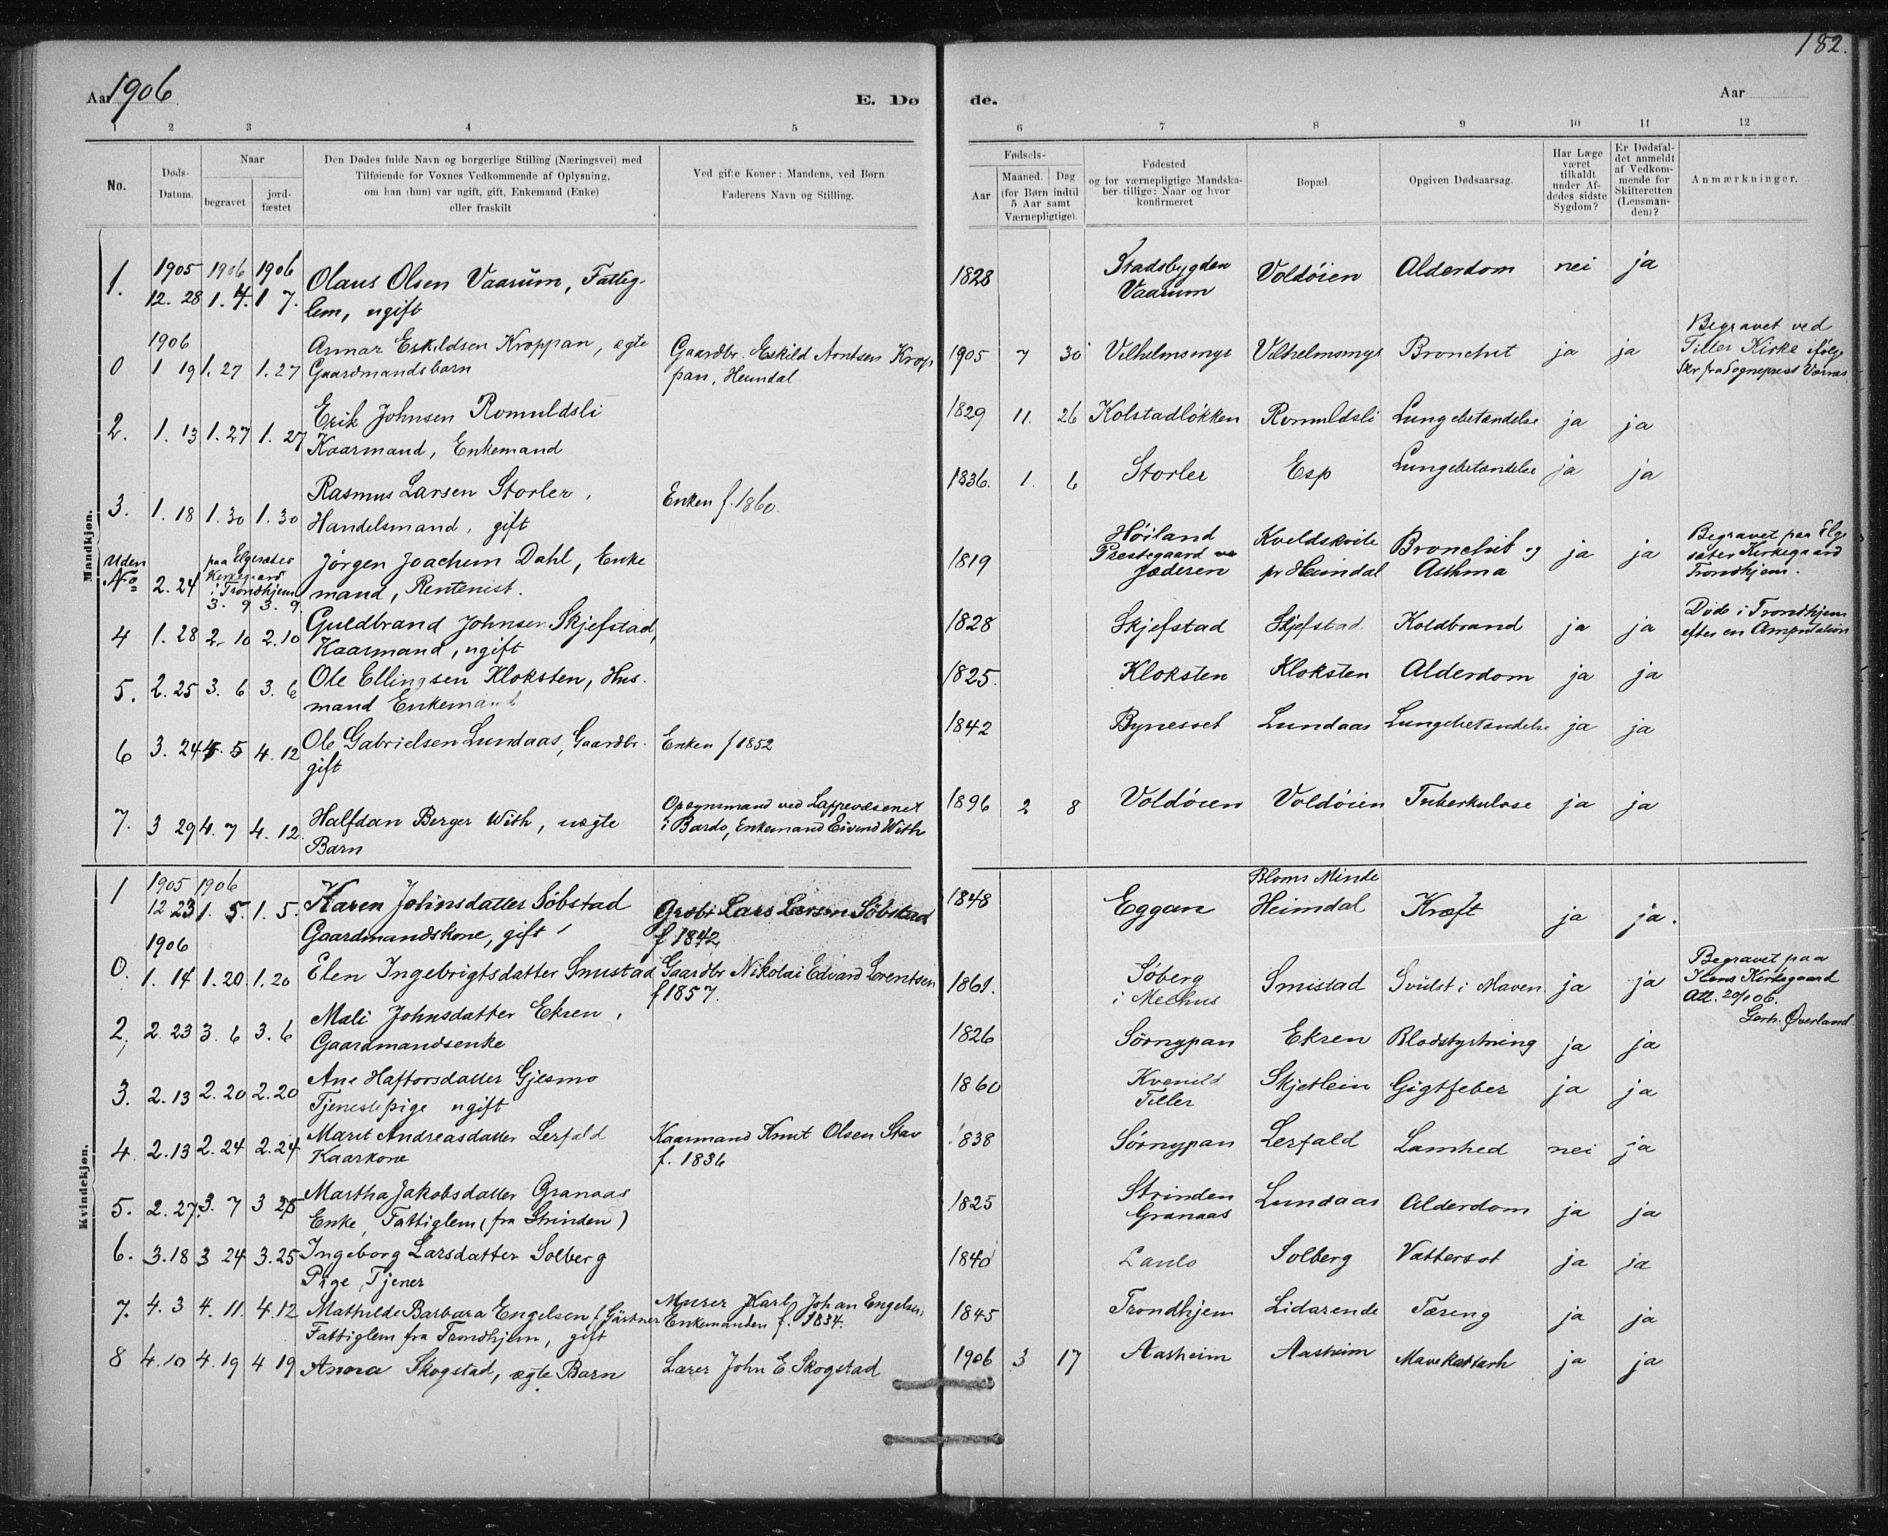 182.
Aar 1906
E. Dø
de.
Aar
1 2 3 4 5 6 7 8 9 10 11 12
No.
Døds-
Datum.
Naar
begravet
jord-
fæstet
Den Dødes fulde Navn og borgerlige Stilling (Næringsvei) med
Tilføiende for Voxnes Vedkommende af Oplysning,
om han (hun) var ugift, gift, Enkemand (Enke)
eller fraskilt
Ved gifte Koner: Mandens, ved Børn
Faderens Navn og Stilling.
Fødsels-
Aar
Maaned. Dag
(for Børn indtil
5 Aar samt
Værnepligtige).
Fødested
og for værnepligtige Mandska-
ber tillige: Naar og hvor
konfirmeret
Bopæl.
Opgiven Dødsaarsag.
Har Læge
været
tilkaldt
under Af-
dødes sidste
Sygdom?
Er Dødsfal-
det anmeldt
af Vedkom-
mende for
Skifteretten
(Lensman-
den)?
Anmærkninger.
Mandkjøn.
1905 1906 1906
1. 12. 28 1. 7. 1 7. Olaus Olsen Vaarum, Fattig-
lem, ugift
1828 Stadsbygden
Vaarum
Voldöien Alderdom nei ja
1906
0 1 19 1. 27 1. 27 Annar Eskildsen Kroppan, ægte
Gaardmandsbarn
Gaardbr. Eskild Arntsen Krop
pan, Heimdal
1905 7 30 Vilhelmsmyr Vilhelmsmyr Bronchit ja ja
Begravet ved
Tiller Kirke ifölge
Skr fra Sogneprest Værnæs
2. 1. 13 1. 27 1. 27 Erik Johnsen Romuldsli
Kaarmand, Enkemand
1829 11. 26 Kolstadløkken Romuldsli Lungebetændelse ja ja
3. 1. 18 1. 30 1. 30 Rasmus Larsen Storler,
Handelsmand, gift
Enken f. 1860.
1836. 1. 6 Storler Esp Lungebetændelse ja ja
Uden
No 2. 24 paa Elgesæter
Kirkegaard
i Trondhjem
3. 9 3. 9.
Jörgen Joachum Dahl, Enke
mand, Rentenist.
1819 Höiland
Prestegaard
Jæderen
Kveldskvile
pr Heimdal
Bronchit og
Asthma
ja ja
Begravet paa Elge
sæter Kirkegaard
Trondhjem.
4 1. 28 2. 10 2. 10 Guldbrand Johnsen Skjefstad,
Kaarmand, ugift
1828 Skjefstad Skjefstad Koldbrand ja ja
Døde i Trondhjem
efter en Amputation
5. 2. 25 3. 6 3. 6 Ole Ellingsen Kloksten, Hus-
mand Enkemand
1825. Kloksten Kloksten Alderdom ja ja
6 3. 24 4. 5 4. 12 Ole Gabrielsen Lundaas, Gaardbr.
gift
Enken f 1852
1842 Bynesset Lundaas Lungebetændelse ja ja
7. 3 29 4. 7 4. 12. Halfdan Berger With, uægte
Barn
Opsynsmand ved Lappevæsenet
i Bardo, Enkemand Eivind With
1896 2 8 Voldöien Voldöien Tuberkulose ja ja
Kvindekjøn.
1905 1906
1 12 23 1. 5. 1. 5. Karen Johnsdatter Söbstad
Gaardmandskone, gift
Grbr Lars Larsen Söbstad
f 1842
1848 Eggan Bloms Minde
Heimdal Kræft ja ja.
1906
0. 1. 14 1. 20. 1. 20 Elen Ingebrigtsdatter Smistad
Gaardbr Nikolai Edvard Lorentsen
f 1857.
1861. Söberg
i Melhus
Smistad Svulst i Maven ja ja
Begravet paa
Klæns Kirkegaard
Att. 20/1 06.
Gerh. Øverland
2. 2 23 3 6 3. 6 Mali Johnsdatter Ekren,
Gaardmandsenke
1826 Sörnypan Ekren Blodstyrtning ja ja
3. 2. 13 2. 20 2. 20 Ane Haftorsdatter Gjesmo
Tjenestepige ugift
1860 Kvenild
Tiller
Skjetlein Gigtfeber ja ja
4. 2. 13 2. 24 2. 24 Marit Andreasdatter Lerfald
Kaarkone
Kaarmand Knut Olsen Stav
f. 1836
1838 Sörnypan Lerfald Lamhed nei ja
5. 2. 27. 3. 7 3 25 Martha Jakobsdatter Granaas
Enke, Fattiglem (fra Strinden)
1825 Strinden
Granaas
Lundaas Alderdom ja ja
6. 3. 18 3 24 3. 25 Ingeborg Larsdatter Solberg
Pige, Tjener
1840 Laulo Solberg Vattersot ja ja
7. 4. 3 4. 11. 4. 12 Mathilde Barbara Engelsen f. Gärtner
Fattiglem fra Trondhjem, gift
Murer Karl Johan Engelsen
Enkemanden f. 1834.
1845 Trondhjem Lidarende Tæring ja ja
8 4. 10 4. 19 4 19 Anora Skogstad, ægte Barn
Lærer John E Skogstad
1906 3 17 Aasheim Aasheim Mavekattarh ja ja